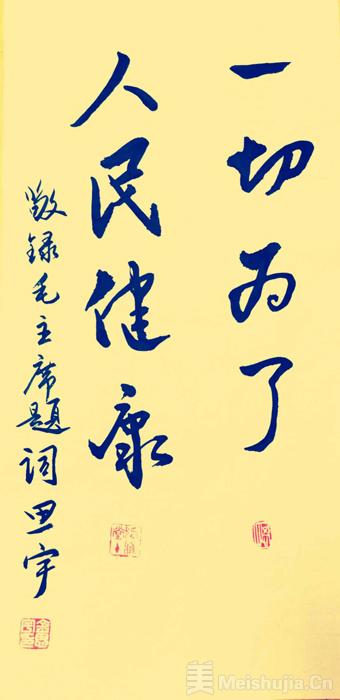 一切为了
人民健康
敬录毛主席题词思宇
美 Meishujia.Cn